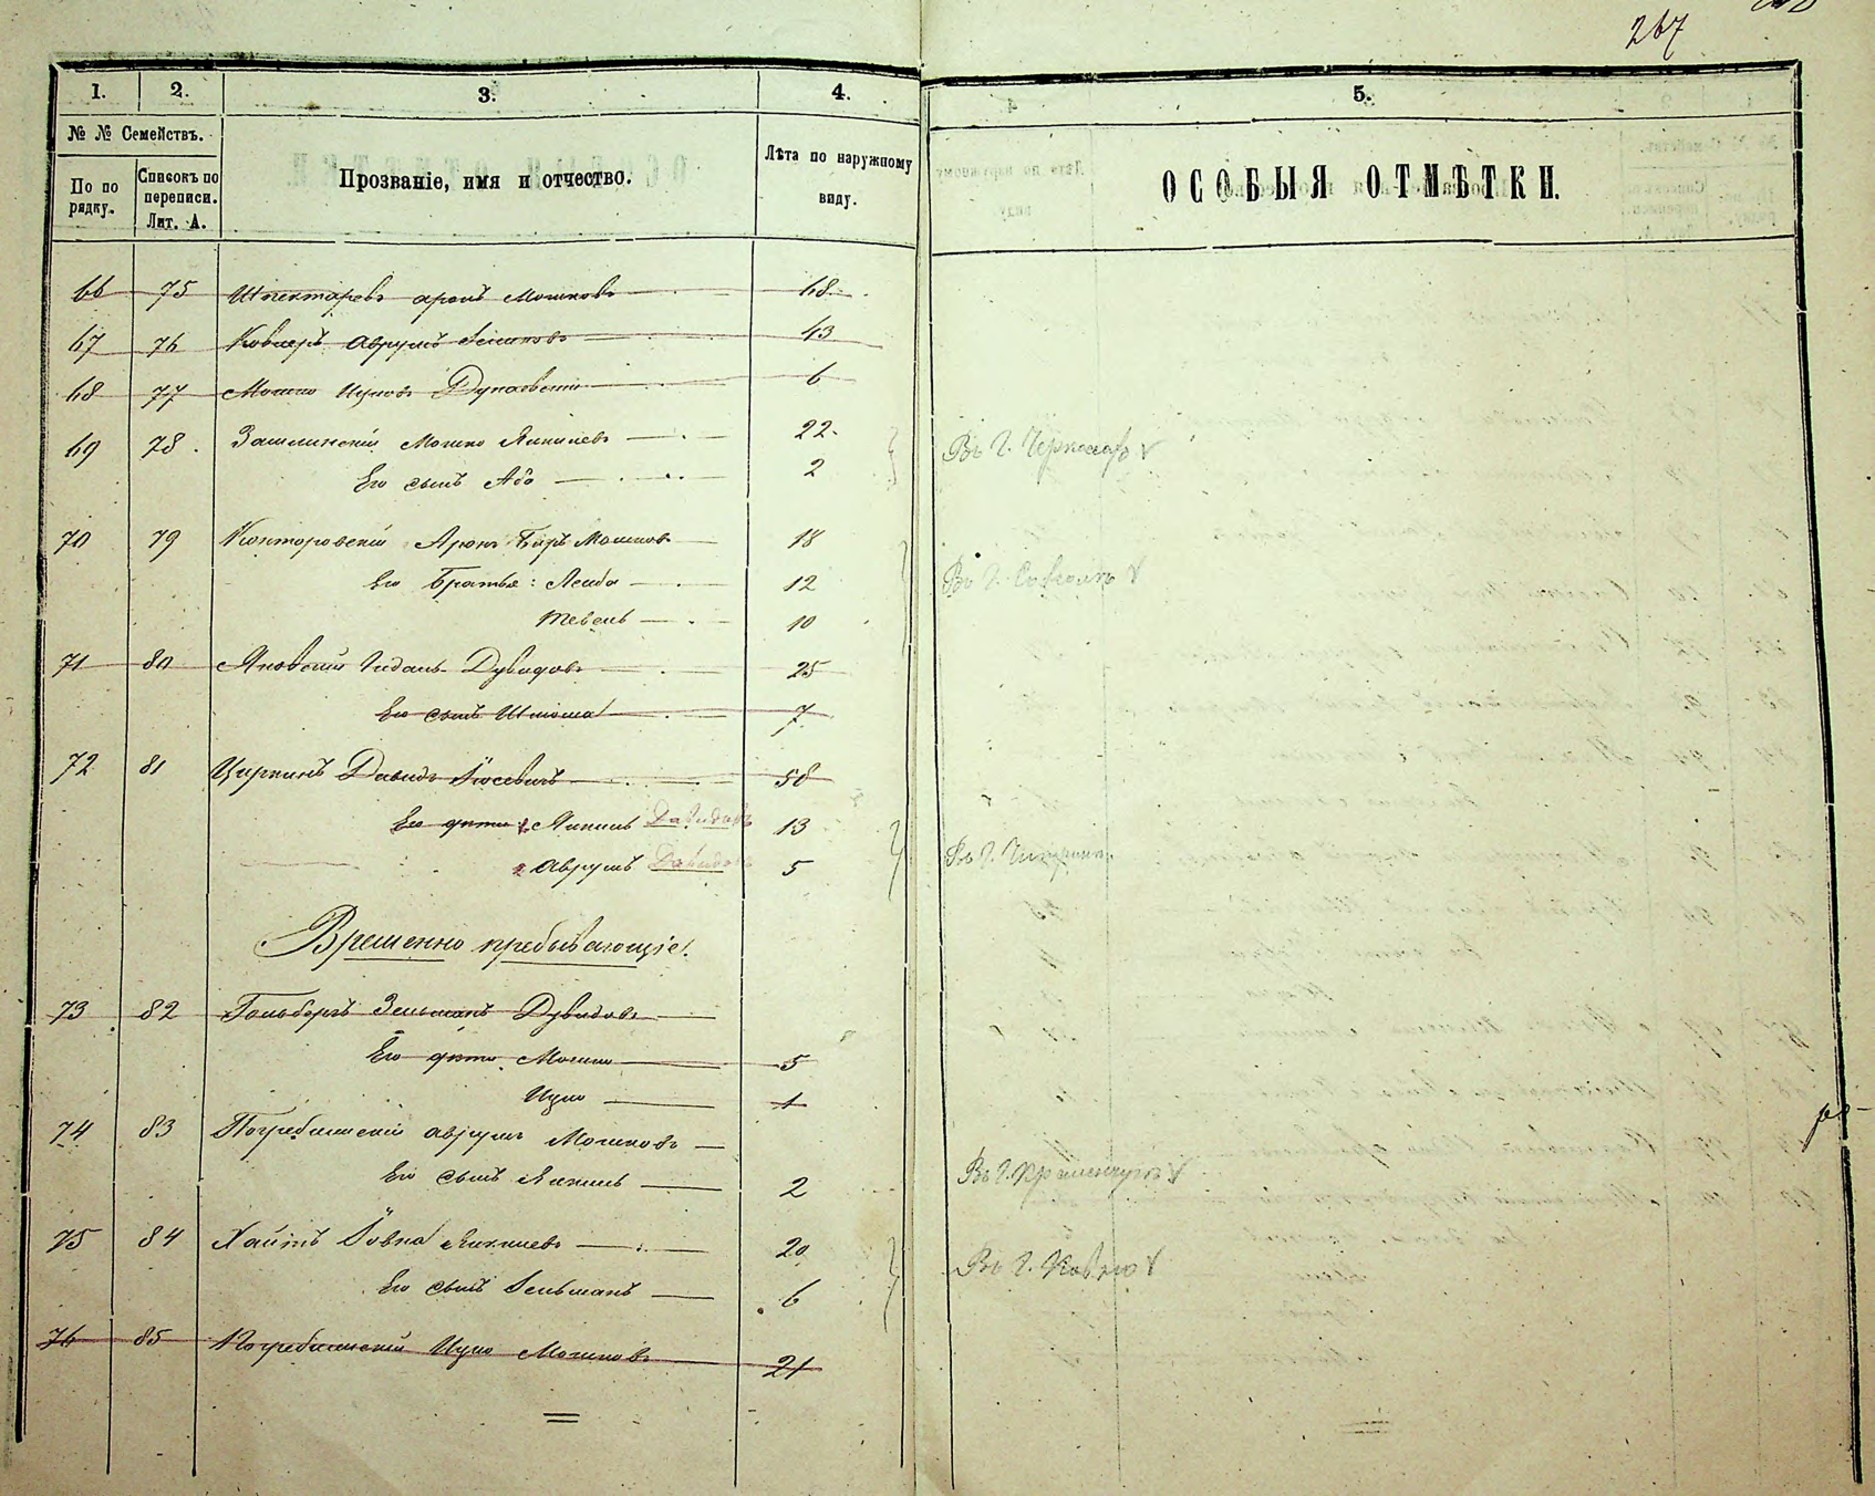 267
1. 2. 3. 4. 5.
№ № Семействъ.
По по рядку.
Списокъ по переписи. Лит. А.
Прозваніе, имя и отчество.
Лѣта по наружному виду.
ОСОБЫЯ ОТМѢТКИ.
66 75 Шпектаревъ аронъ Мошковъ 68
67 76 Ковлеръ Аврумъ 43
68 77 Мошко Ицковъ Дунаевскій 6
69 78 Зашлинскій Мошко Янкелевъ 22 Въ Г. Черкасахъ
Его сынъ Аба 2
70 79 Конторовскій Аронъ Беръ Мошковъ 18 Въ Г.
Его Братья: Лейба 12
Тевель 10
71 80 Яновскій Гидаль Дувидовъ 25
Его сынъ Шлиома 7
72 81 Циркинъ Давидъ Іосевичъ 58
Его дѣти Янкель Давидовъ 13 Въ Г. Чигиринъ
Аврумъ Давидовъ 5
Временно пребывающіе.
73 82 Гольбергъ Зельманъ Дувидовъ
Его дѣти Мошко 5
Ицко 1
74 83 Погребинскій аврумъ Мошковъ Въ Г. Кременчугъ
Его сынъ Янкель 2
75 84 Хаитъ Іовна Янкилевъ 20 Въ Г.
Его сынъ Зельманъ 6
76 85 Погребинскій Ицко Мошковъ 21